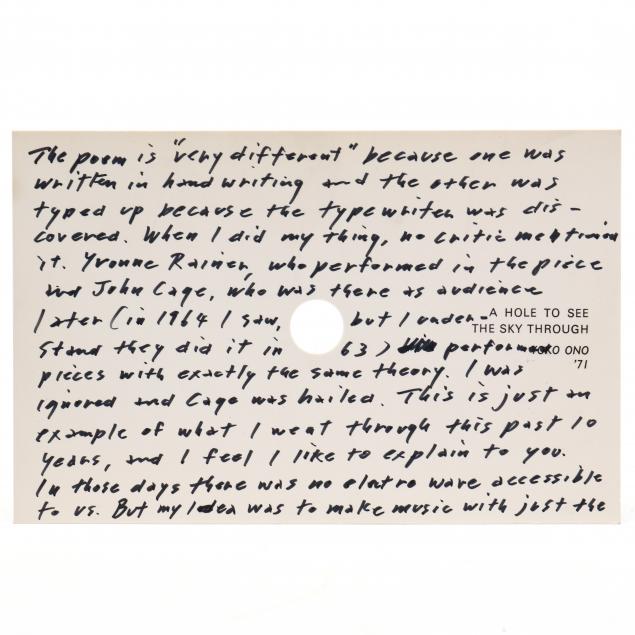 The poem is "very different" because one was
written in hand writing and the other was
typed up because the typewriter was dis-
covered. When I did my thing, no critic mentioned
it. Yvonne Rainer, who performed in the piece
and John Cage, who was there as audience
later (in 1964 I saw, but I under-
stand they did it in 63) performed
pieces with exactly the same theory. I was
ignored and Cage was hailed. This is just an
example of what I went through this past 10
years, and I feel I like to explain to you.
In those days there was no electro ware accessible
to us. But my Idea was to make music with just the
A HOLE TO SEE
THE SKY THROUGH
YOKO ONO
'71